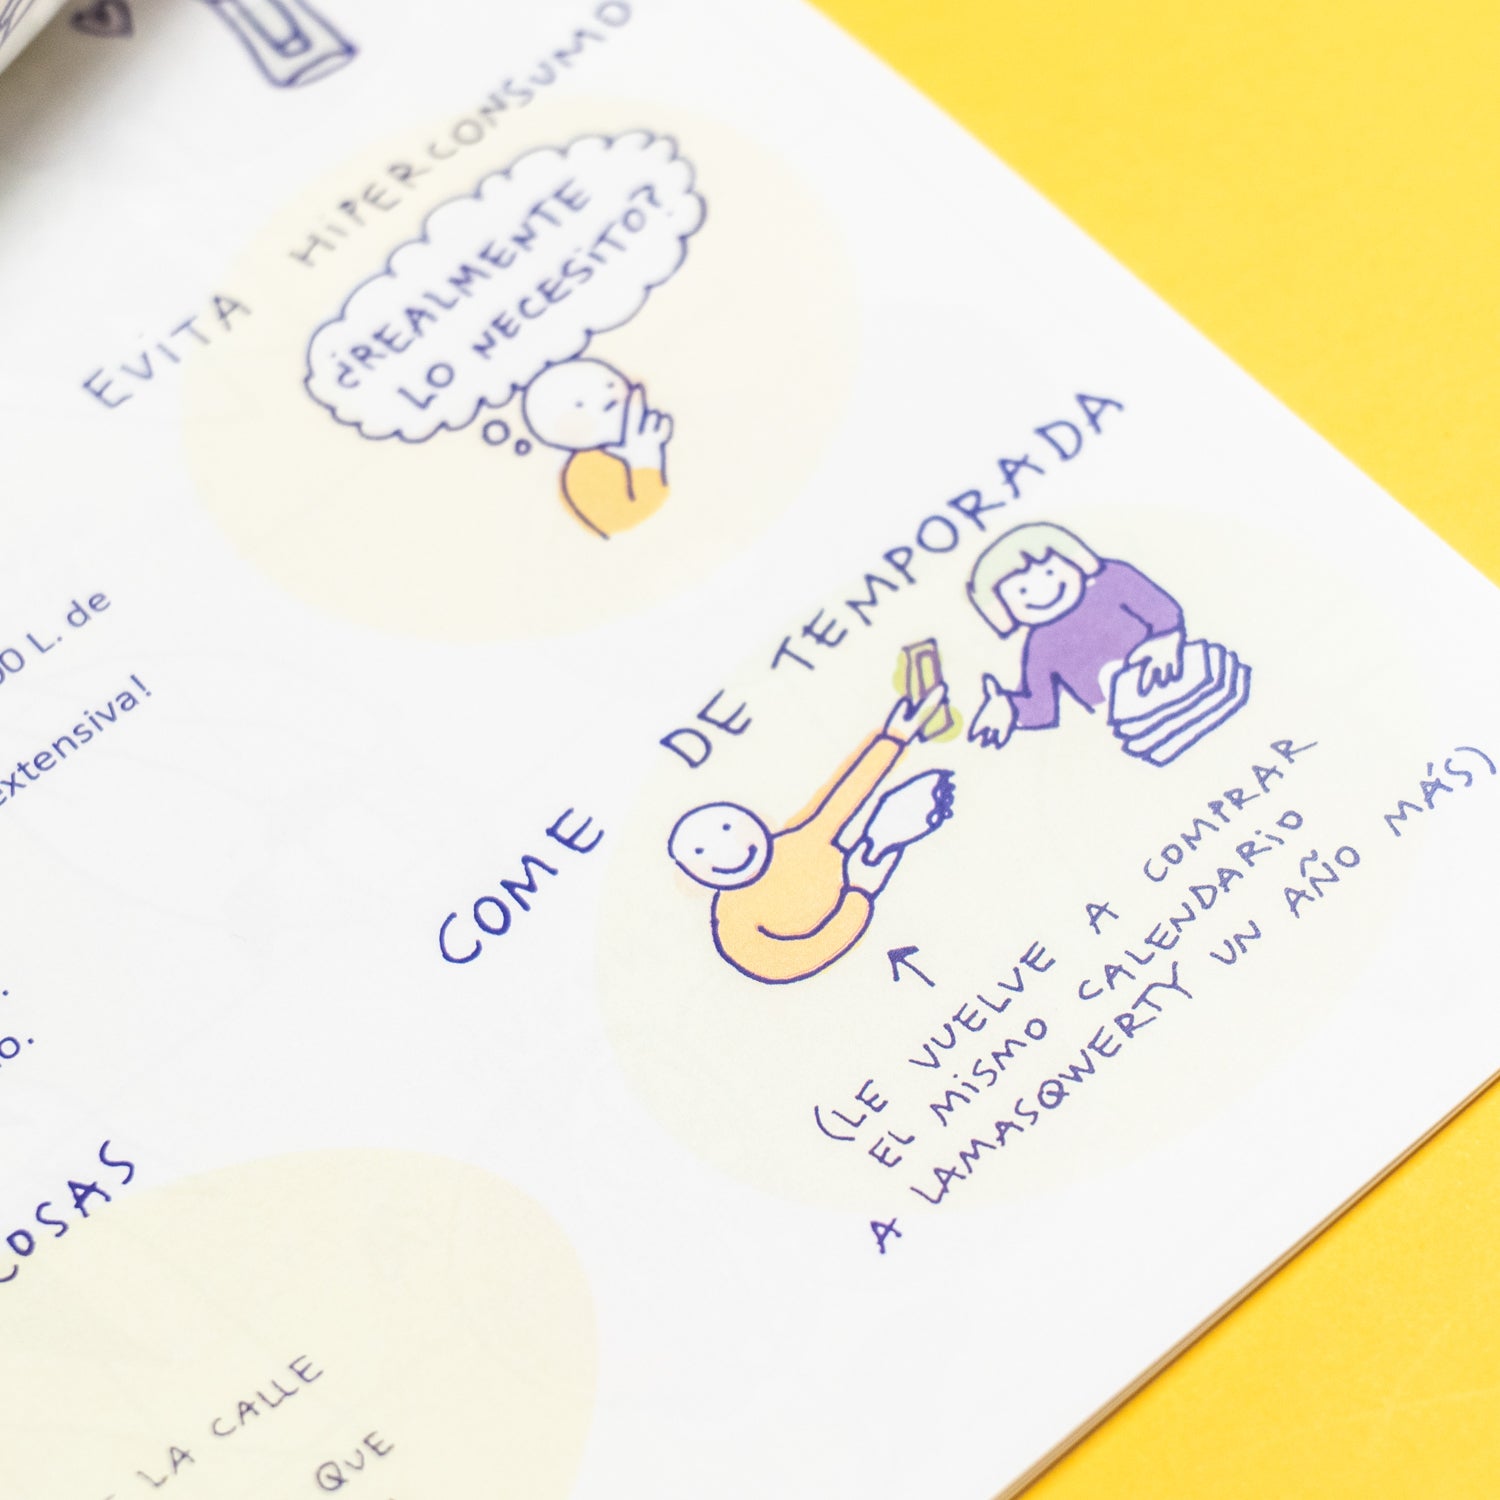 EVITA HIPERCONSUMO
¿REALMENTE
LO NECESITO?
00 L. de
extensiva!
COME DE TEMPORADA
(LE VUELVE A COMPRAR
EL MISMO CALENDARIO
A LAMASQWERTY UN AÑO MÁS)
COSAS
LA CALLE
QUE